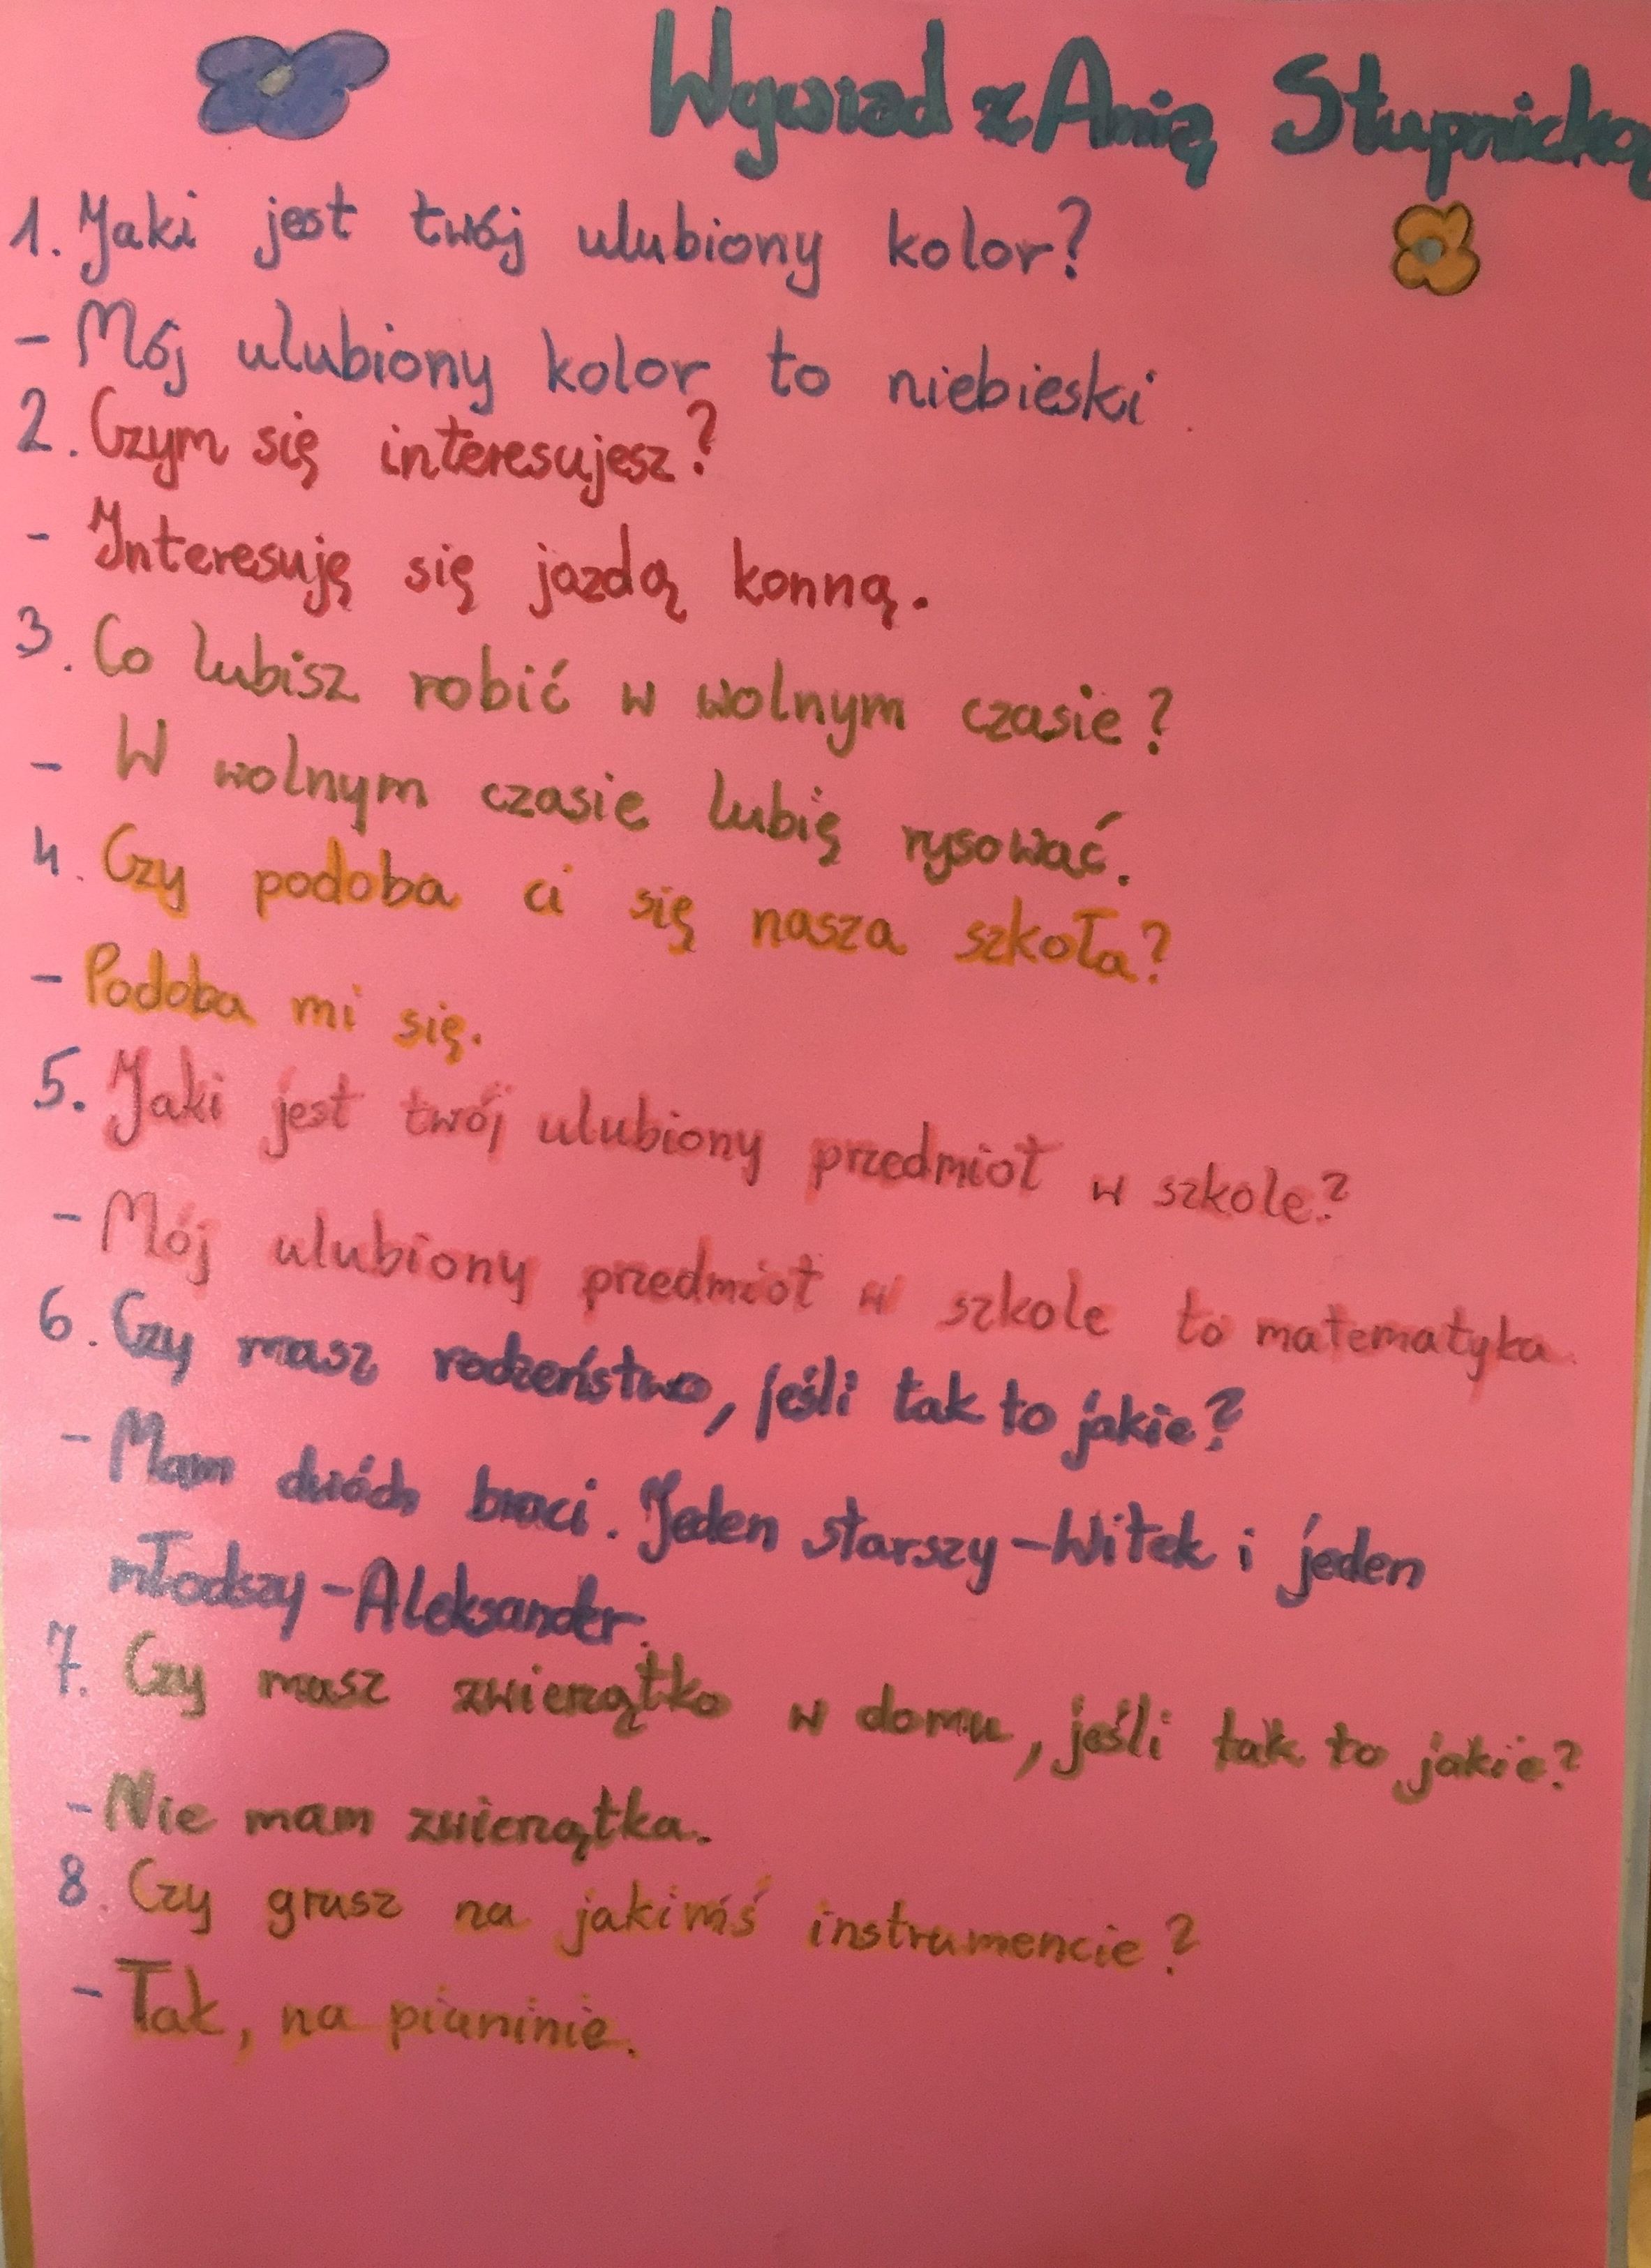 Wywiad z Anią Stupnicką
1. Jaki jest twój ulubiony kolor?
- Mój ulubiony kolor to niebieski.
2. Czym się interesujesz?
- Interesuję się jazdą konną.
3. Co lubisz robić w wolnym czasie?
- W wolnym czasie lubię rysować.
4. Czy podoba ci się nasza szkoła?
- Podoba mi się.
5. Jaki jest twój ulubiony przedmiot w szkole?
- Mój ulubiony przedmiot w szkole to matematyka.
6. Czy masz rodzeństwo, jeśli tak to jakie?
- Mam dwóch braci. Jeden starszy - Witek i jeden
młodszy - Aleksander.
7. Czy masz zwierzątko w domu, jeśli tak to jakie?
- Nie mam zwierzątka.
8. Czy grasz na jakimś instrumencie?
- Tak, na pianinie.